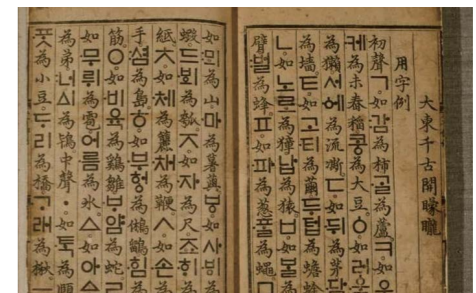 大東千古開矇矓
用字例
初聲ㄱ。如감為柿。ᄀᆞᆯ為蘆。ㅋ。如우
케為未舂稻。콩為大豆。ㆁ。如러울
為獺。서에為流凘。ㄷ。如뒤為茅。담
為墻。ㅌ。如고티為繭。두텁為蟾蜍。
ㄴ。如노로為獐。납為猿。ㅂ。如ᄇᆞᆯ
臂。벌為蜂。ㅍ。如파為葱。ᄑᆞᆯ為蠅。ㅁ
如뫼為山。마為薯藇。ㅸ。如사ᄫᅵ
蝦。드ᄫᅴ為瓠。ㅈ。如자為尺。죠ᄒᆡ
紙。ㅊ。如체為簏。채為鞭。ㅅ。如손
手。셤為島。ㅎ。如부헝為鵂鶹。힘為
筋。ㅇ。如비육為鷄雛。ᄇᆞ얌為蛇。ㄹ
如무뤼為雹。어름為氷。ㅿ。如아ᅀᆞ
為弟。너ᅀᅵ為鴇。中聲ㆍ。如ᄐᆞᆨ為頤
ᄑᆞᆺ為小豆。ᄃᆞ리為橋。ᄀᆞ래為楸